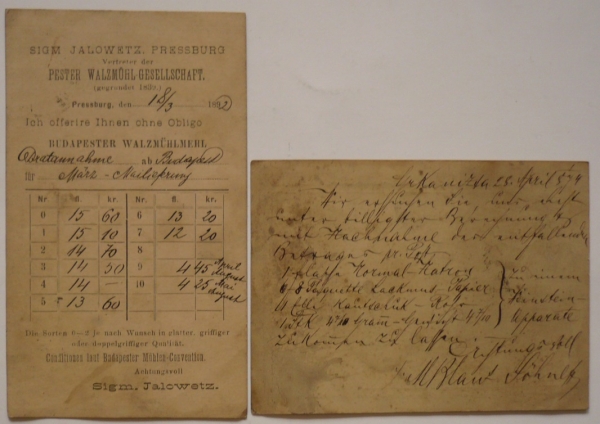 SIGM JALOWETZ, PRESSBURG
Vertreter der
PESTER WALZMÜHL-GESELLSCHAFT.
(gegründet 1839.)
Pressburg, den 18/3 18
Ich offerire Ihnen ohne Obligo
BUDAPESTER WALZMÜHLMEHL
ab Budapest
für März
Nr. fl. kr. Nr. fl. kr.
0 15 60 6 13 20
1 15 10 7 12 20
2 14 70 8
3 14 50 9 4 45 April August
4 14 — 10 4 25 Mai August
5 13 60
Die Sorten 0—2 je nach Wunsch in glatter, griffiger
oder doppelgriffiger Qualität.
Conditionen laut Budapester Mühlen-Convention.
Achtungsvoll
Sigm. Jalowetz.
28 April
Wir ersuchen Sie, uns
unter billigster Berechnung
mit Nachnahme des entfallenden
Betrages
1 Flasche Normal-Natron
Lackmus-Papier
Kautschuk
Gramm
zu einem
Apparate
zukommen zu lassen.
Achtungsvoll
M Blau Söhne